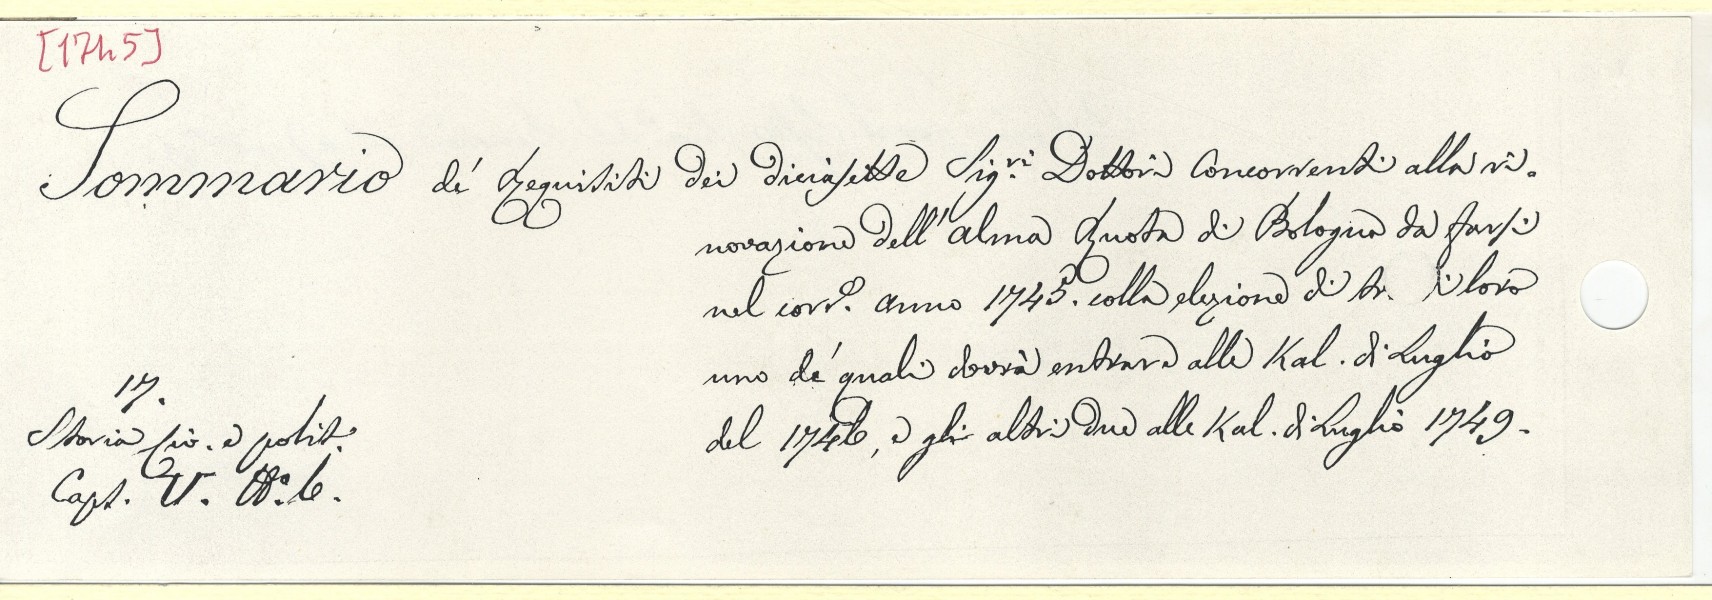 [1745]
Sommario de' Requisiti dei diciasette Sig.ri Dottori Concorrenti alla ri-
novazione dell'alma Ruota di Bologna da farsi
nel corr.e anno 1745. colla elezione di tr. di loro
uno de' quali dovrà entrare alle Kal. di Luglio
del 1746, e gli altri due alle Kal. di Luglio 1749.
17.
Storia civ. e polit.
Capt. V. N.° 6.